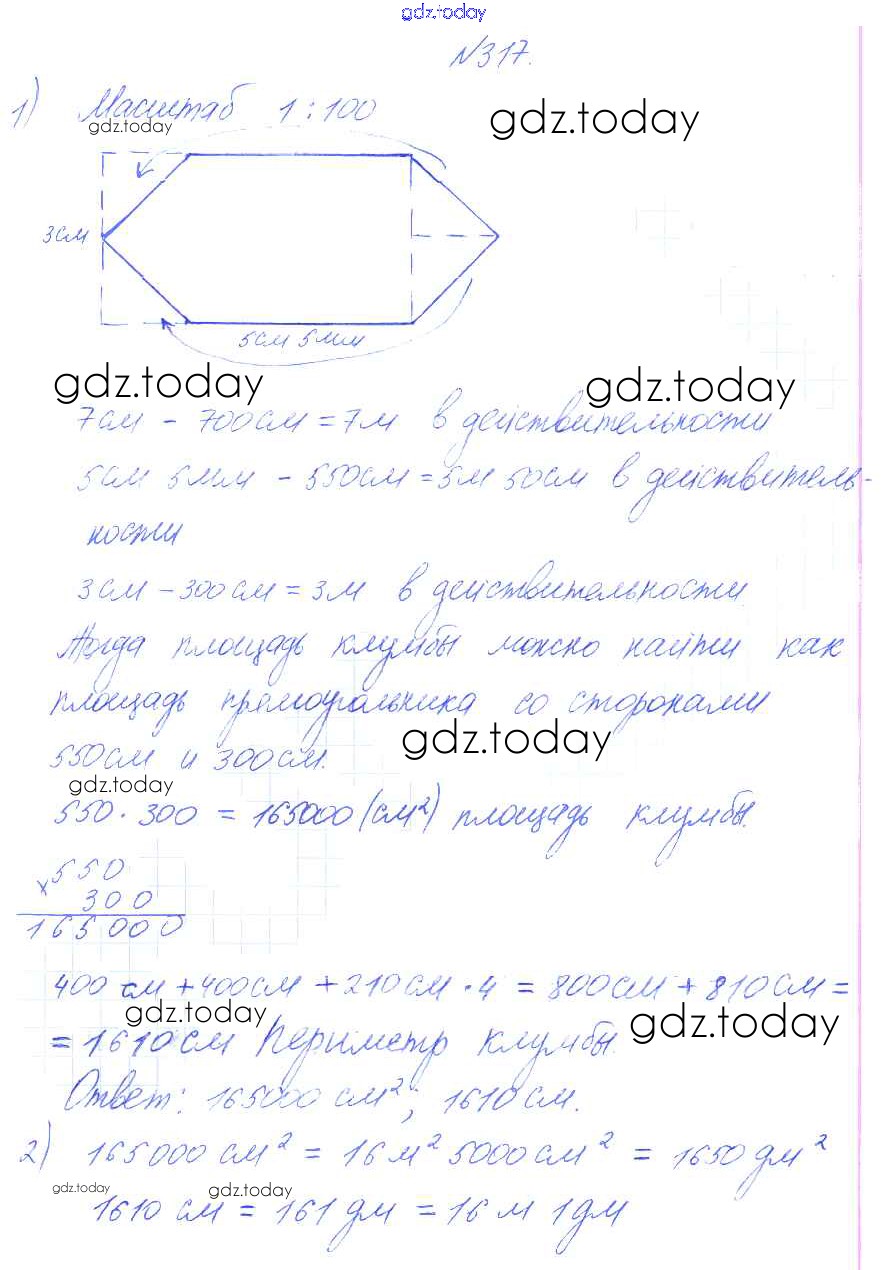 gdz.today
№317.
1) Масштаб 1 : 100
gdz.today
gdz.today
3см
5см 5мм
gdz.today
gdz.today
7см - 700см = 7м в действительности
5см 5мм - 550см = 5м 50см в действитель-
ности
3см - 300см = 3м в действительности
Тогда площадь клумбы можно найти как
площадь прямоугольника со сторонами
gdz.today
550см и 300см.
gdz.today
550 · 300 = 165000 (см²) площадь клумбы.
× 550
300
165000
400 см + 400см + 210см · 4 = 800см + 810см =
gdz.today
gdz.today
= 1610см Периметр клумбы.
Ответ: 165000 см²; 1610см.
2) 165000 см² = 16м² 5000см² = 1650дм²
gdz.today
gdz.today
1610 см = 161дм = 16м 1дм